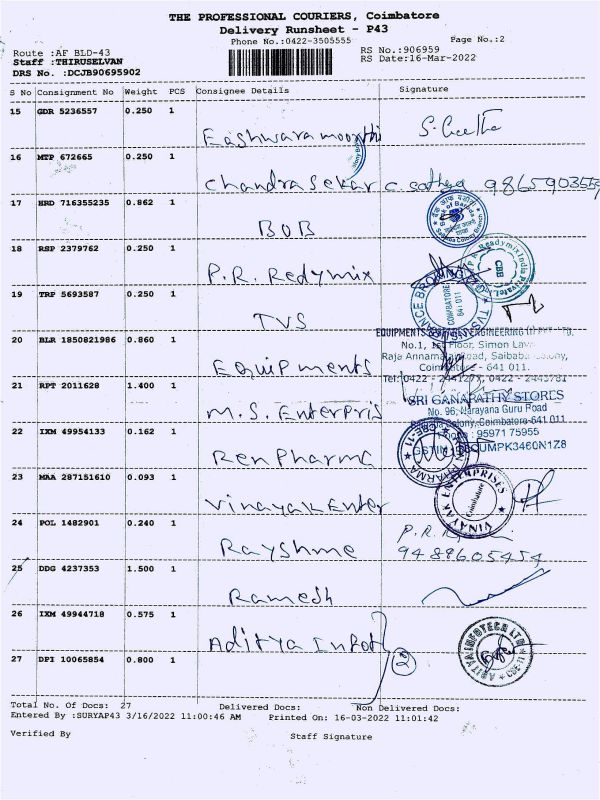 THE PROFESSIONAL COURIERS, Coimbatore
Delivery Runsheet - P43
Phone No.:0422-3505555 Page No.:2
Route :AF BLD-43 RS No.:906959
Staff :THIRUSELVAN RS Date:16-Mar-2022
DRS No. :DCJB90695902
S No Consignment No Weight PCS Consignee Details Signature
15 GDR 5236557 0.250 1
Eashwaramoorthi S. Geetha
16 MTP 672665 0.250 1
Chandrasekar C. Sathya
17 HRD 716355235 0.862 1
BOB
Bank of Baroda
18 RSP 2379762 0.250 1
P.R. Redymix
CBE
19 TRP 5693587 0.250 1
TVS
COIMBATORE
641 011
20 BLR 1850821986 0.860 1
Equipments
No.1, 1st Floor, Simon
Raja Annamalai Road, Saibaba Colony,
Coimbatore - 641 011.
Tel: 0422 - 2441277, 0422 - 2443781
21 RPT 2011628 1.400 1
M.S. Enterpris
SRI GANAPATHY STORES
No. 96, Narayana Guru Road
Colony, Coimbatore-641 011
Phone : 95971 75955
22 IXM 49954133 0.162 1
Ren Pharma
23 MAA 287151610 0.093 1
Vinayak Enter
VINAYAK ENTERPRISES
Coimbatore
24 POL 1482901 0.240 1
Rayshme P.R.
9489605454
25 DDG 4237353 1.500 1
Ramesh
26 IXM 49944718 0.575 1
Aditya Infot
ADITYA INFOTECH LTD
27 DPI 10065854 0.800 1
2
Total No. Of Docs: 27 Delivered Docs: Non Delivered Docs:
Entered By :SURYAP43 3/16/2022 11:00:46 AM Printed On: 16-03-2022 11:01:42
Verified By Staff Signature